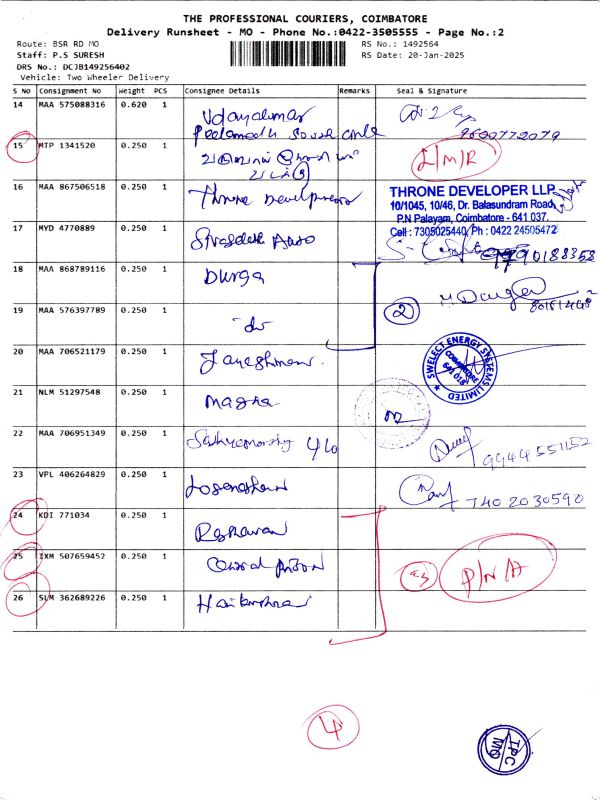 THE PROFESSIONAL COURIERS, COIMBATORE
Delivery Runsheet - MO - Phone No.:0422-3505555 - Page No.:2
Route: BSR RD MO
RS No.: 1492564
Staff: P.S SURESH
RS Date: 20-Jan-2025
DRS No.: DCJB149256402
Vehicle: Two Wheeler Delivery
S No Consignment No Weight PCS Consignee Details Remarks Seal & Signature
14 MAA 575088316 0.620 1 Udayakumar
9600772079
15 MTP 1341520 0.250 1
L/M/R
16 MAA 867506518 0.250 1 Throne Developers
THRONE DEVELOPER LLP
10/1045, 10/46, Dr. Balasundram Road,
P.N Palayam, Coimbatore - 641 037.
Cell : 7305025440, Ph : 0422 24505472
17 MYD 4770889 0.250 1 Auto
18 MAA 868789116 0.250 1 Durga
2
19 MAA 576397789 0.250 1 do
20 MAA 706521179 0.250 1
SWELECT ENERGY SYSTEMS LIMITED
COIMBATORE
641 018
21 NLM 51297548 0.250 1 Magna
22 MAA 706951349 0.250 1 Sathyamoorthy
9944551152
23 VPL 406264829 0.250 1
7402030590
24 KDI 771034 0.250 1
25 IXM 507659452 0.250 1
P/N/A
26 SLM 362689226 0.250 1
4
TPC
MO